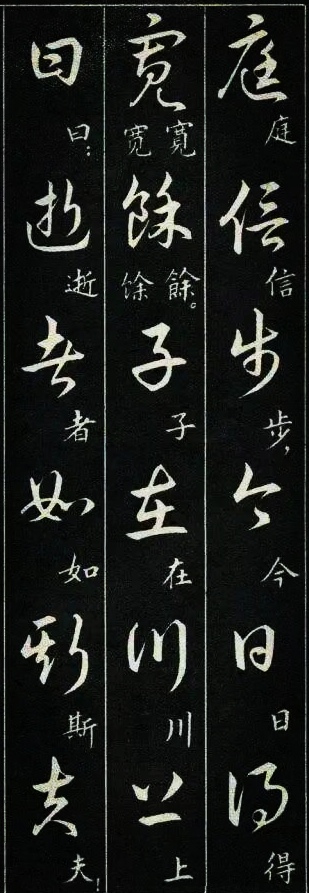 庭 庭 信 信 步 步， 今 今 日 日 得 得
寬 寬 宽 餘 餘。 馀 子 子 在 在 川 川 上 上
曰 曰： 逝 逝 者 者 如 如 斯 斯 夫 夫！